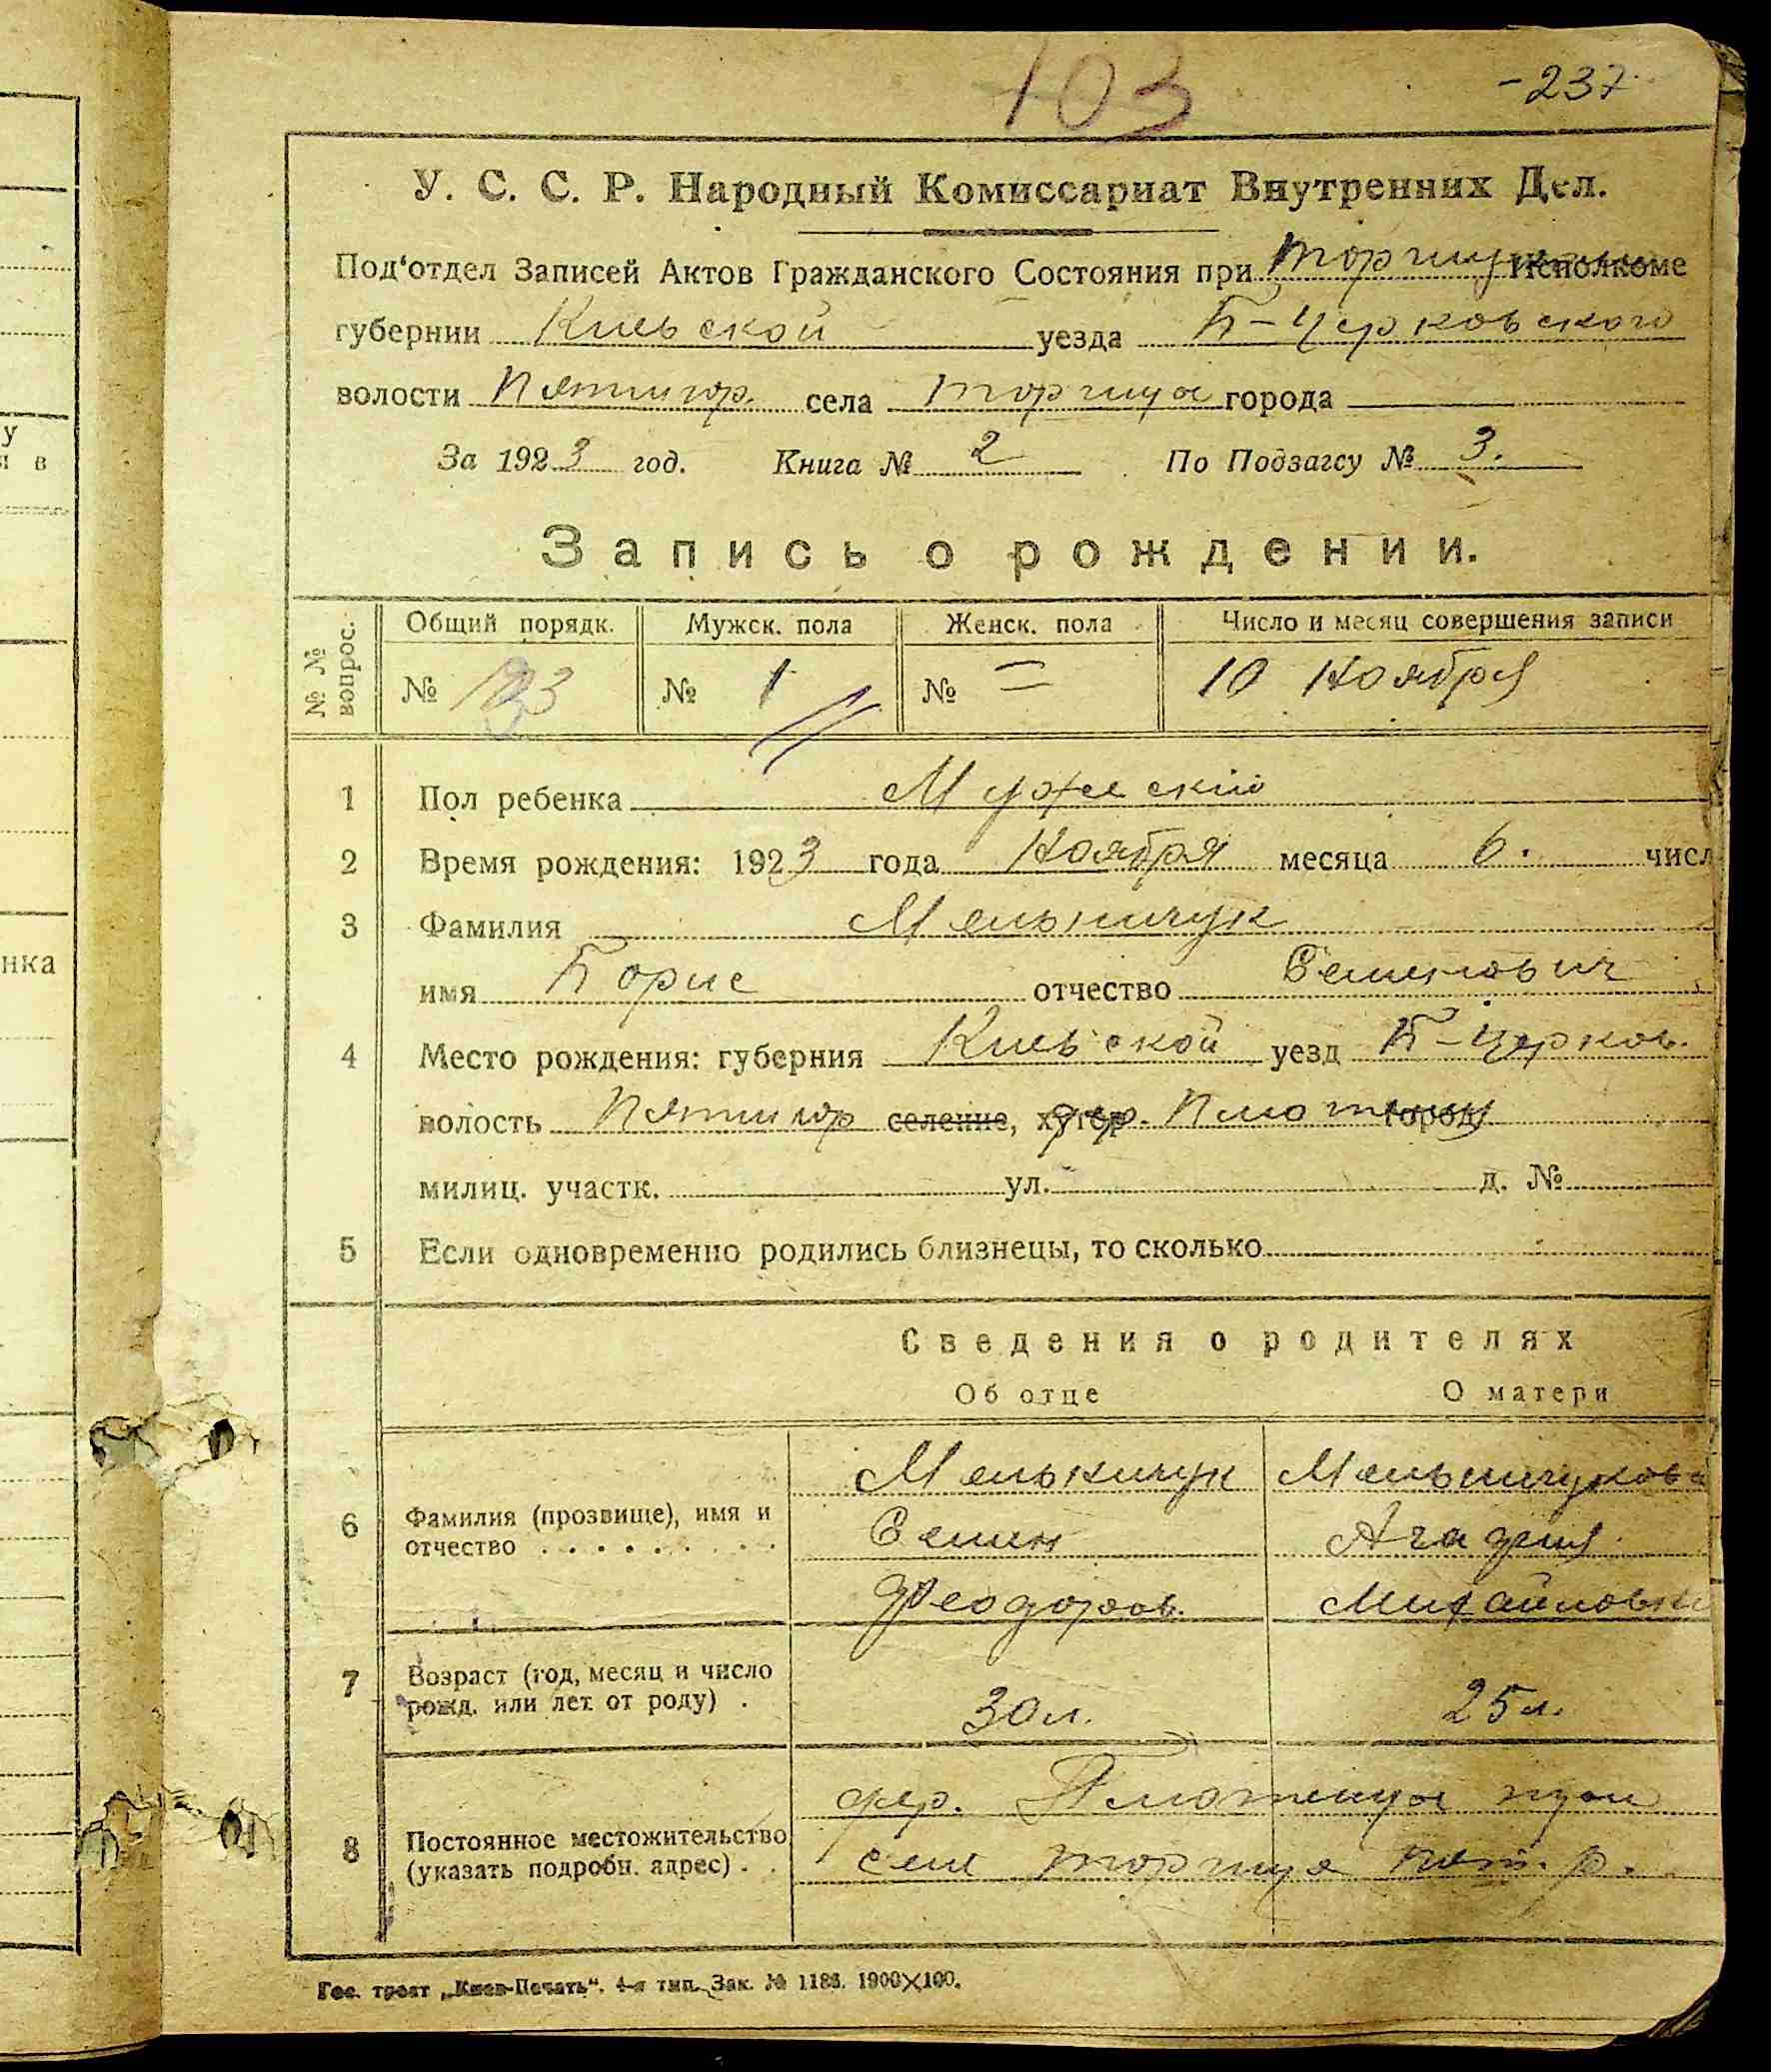 103
-237
У. С. С. Р. Народный Комиссариат Внутренних Дел.
Под'отдел Записей Актов Гражданского Состояния при Исполкоме
губернии Киевской уезда Б-Церковского
волости Пятигор. села Торчица города
За 1923 год. Книга № 2 По Подзагсу № 3.
Запись о рождении.
№ № вопрос. Общий порядк. Мужск. пола Женск. пола Число и месяц совершения записи
№ № 1 № = 10 Ноября
1 Пол ребенка Мужеский
2 Время рождения: 1923 года Ноября месяца 6. числ
3 Фамилия Мельничук
имя Борис отчество Семенович
4 Место рождения: губерния Киевской уезд Б-Церков.
волость Пятигор селение, хутор город
милиц. участк. ул. д. №
5 Если одновременно родились близнецы, то сколько
Сведения о родителях
Об отце О матери
Мельничук Мельничукова
6 Фамилия (прозвище), имя и отчество Семен
Феодоров. Михайловн
7 Возраст (год, месяц и число рожд. или лет от роду) . 30 л. 25 л.
8 Постоянное местожительство (указать подробн. адрес) . .
Гос. трест „Киев-Печать“. 4-я тип. Зак. № 1186. 1900×100.
у
и в
нка